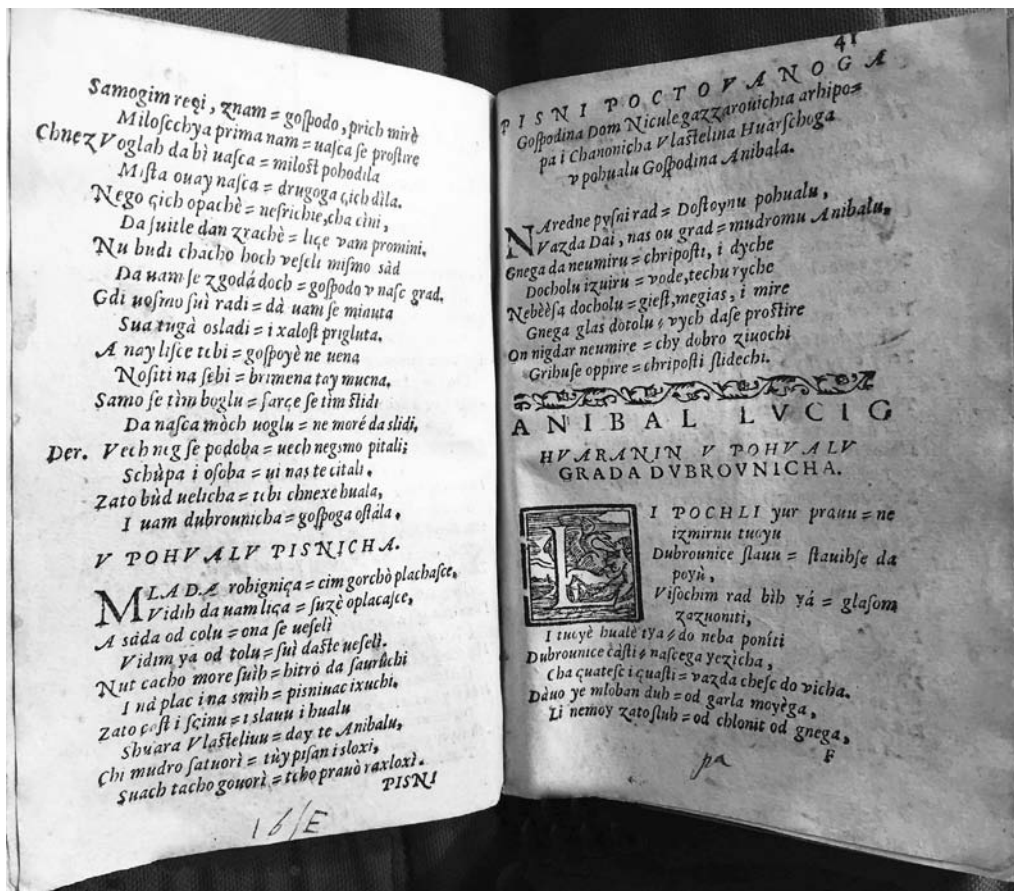 Samogim reçi, znam = goſpodo, prich mirè
Miloſcchya prima nam = uaſca ſe proſtire
Chnez Voglah da bì uaſca = miloſt pohodila
Miſta ouay naſca = drugoga çich dìla.
Nego çich opachè = neſrichie, cha cini,
Da ſuitle dan zrachè = liçe vam promini.
Nu budi chacho hoch veſeli miſmo sàd
Da uam ſe zgodá doch = goſpodo v naſc grad.
Gdi uoſmo ſuì radi = dà uam ſe minuta
Sua tugà osladi = i xaloſt prigluta.
A nay liſce tebi = goſpoyè ne uena
Noſiti na ſebi = brimena tay mucna.
Samo ſe tìm boglu = ſarçe ſe tim ſlidi
Da naſca mòch uoglu = ne moré da slidi,
Der. Vech neg ſe podoba = uech negſmo pitali;
Schùpa i oſoba = ui nas te citali.
Zato bùd uelicha = tebi chnexe huala,
I uam dubrounicha = goſpoga oſtala.
V POHVALV PISNICHA.
MLADA robigniça = cim gorchò plachaſce,
Vidih da uam liça = ſuzè oplacaſce,
A sàda od colu = ona ſe ueſelì
Vidim ya od tolu = ſuì daſte ueſelì.
Nut cacho more ſuìh = hitrò da ſaurùchi
I nà plac i na smìh = piſniuac ixuchi.
Zato çaſt i ſcinu = i slauu i hualu
Shuara Vlaſteliuu = day te Anibalu,
Chi mudro ſatuorì = tùy piſan i sloxi,
Suach tacho gouorì = tcho prauò raxloxì.
PISNI
16/E
41
PISNI POCTOVANOGA
Goſpodina Dom Nicule gazzarouichia arhipo=
pa i Chanonicha Vlaſtelina Huàrſchoga
v pohualu Goſpodina Anibala.
NAredne pyſni rad = Doſtoynu pohualu,
Vazda Dai, nas ou grad = mudromu Anibalu.
Gnega da neumiru = chripoſti, i dyche
Docholu izuiru = vode, techu ryche
Nebèèſa docholu = gieſt, megias, i mire
Gnega glas dotolu = vych daſe proſtire
On nigdar neumire = chy dobro ziuochi
Grihuſe oppire = chripoſti slidechi.
ANIBAL LVCIG
HVARANIN V POHVALV
GRADA DVBROVNICHA.
I POCHLI yur prauu = ne
izmirnu tuoyu
Dubrounice slauu = ſtauihſe da
poyù,
Viſochim rad bìh yá = glaſom
zazuoniti,
I tuoyè hualè tya = do neba ponìti
Dubrounice càſti = naſcega yezìcha,
Cha çuateſc i quaſti = vazda cheſc do vicha.
Dàuo ye mloban duh = od garla moyèga,
Li nemoy zato sluh = od chlonit od gnega,
pa
F